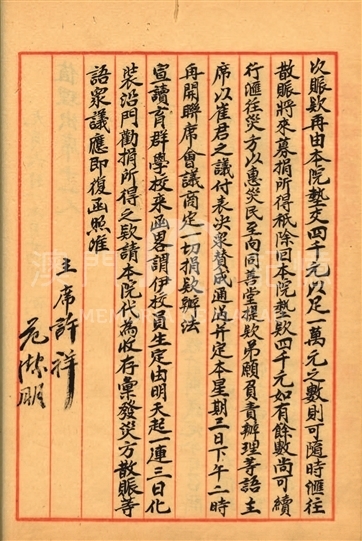 次賑欵再由本院墊交四千元以足一萬元之數則可隨時匯往
散賑將來募捐所得祇除回本院墊欵四千元如有餘數尚可續
行匯往災方以惠災民至向同善堂提欵弟願負責辦理等語主
席以崔君之議付表决衆賛成通過并定本星期三日下午二時
再開聯席會議商定一切捐欵辦法
宣讀育群學校來函畧謂伊校員生定由明天起一連三日化
裝沿門勸捐所得之欵請本院代為收存彙發災方散賑等
語衆議應即復函照准
主席許祥